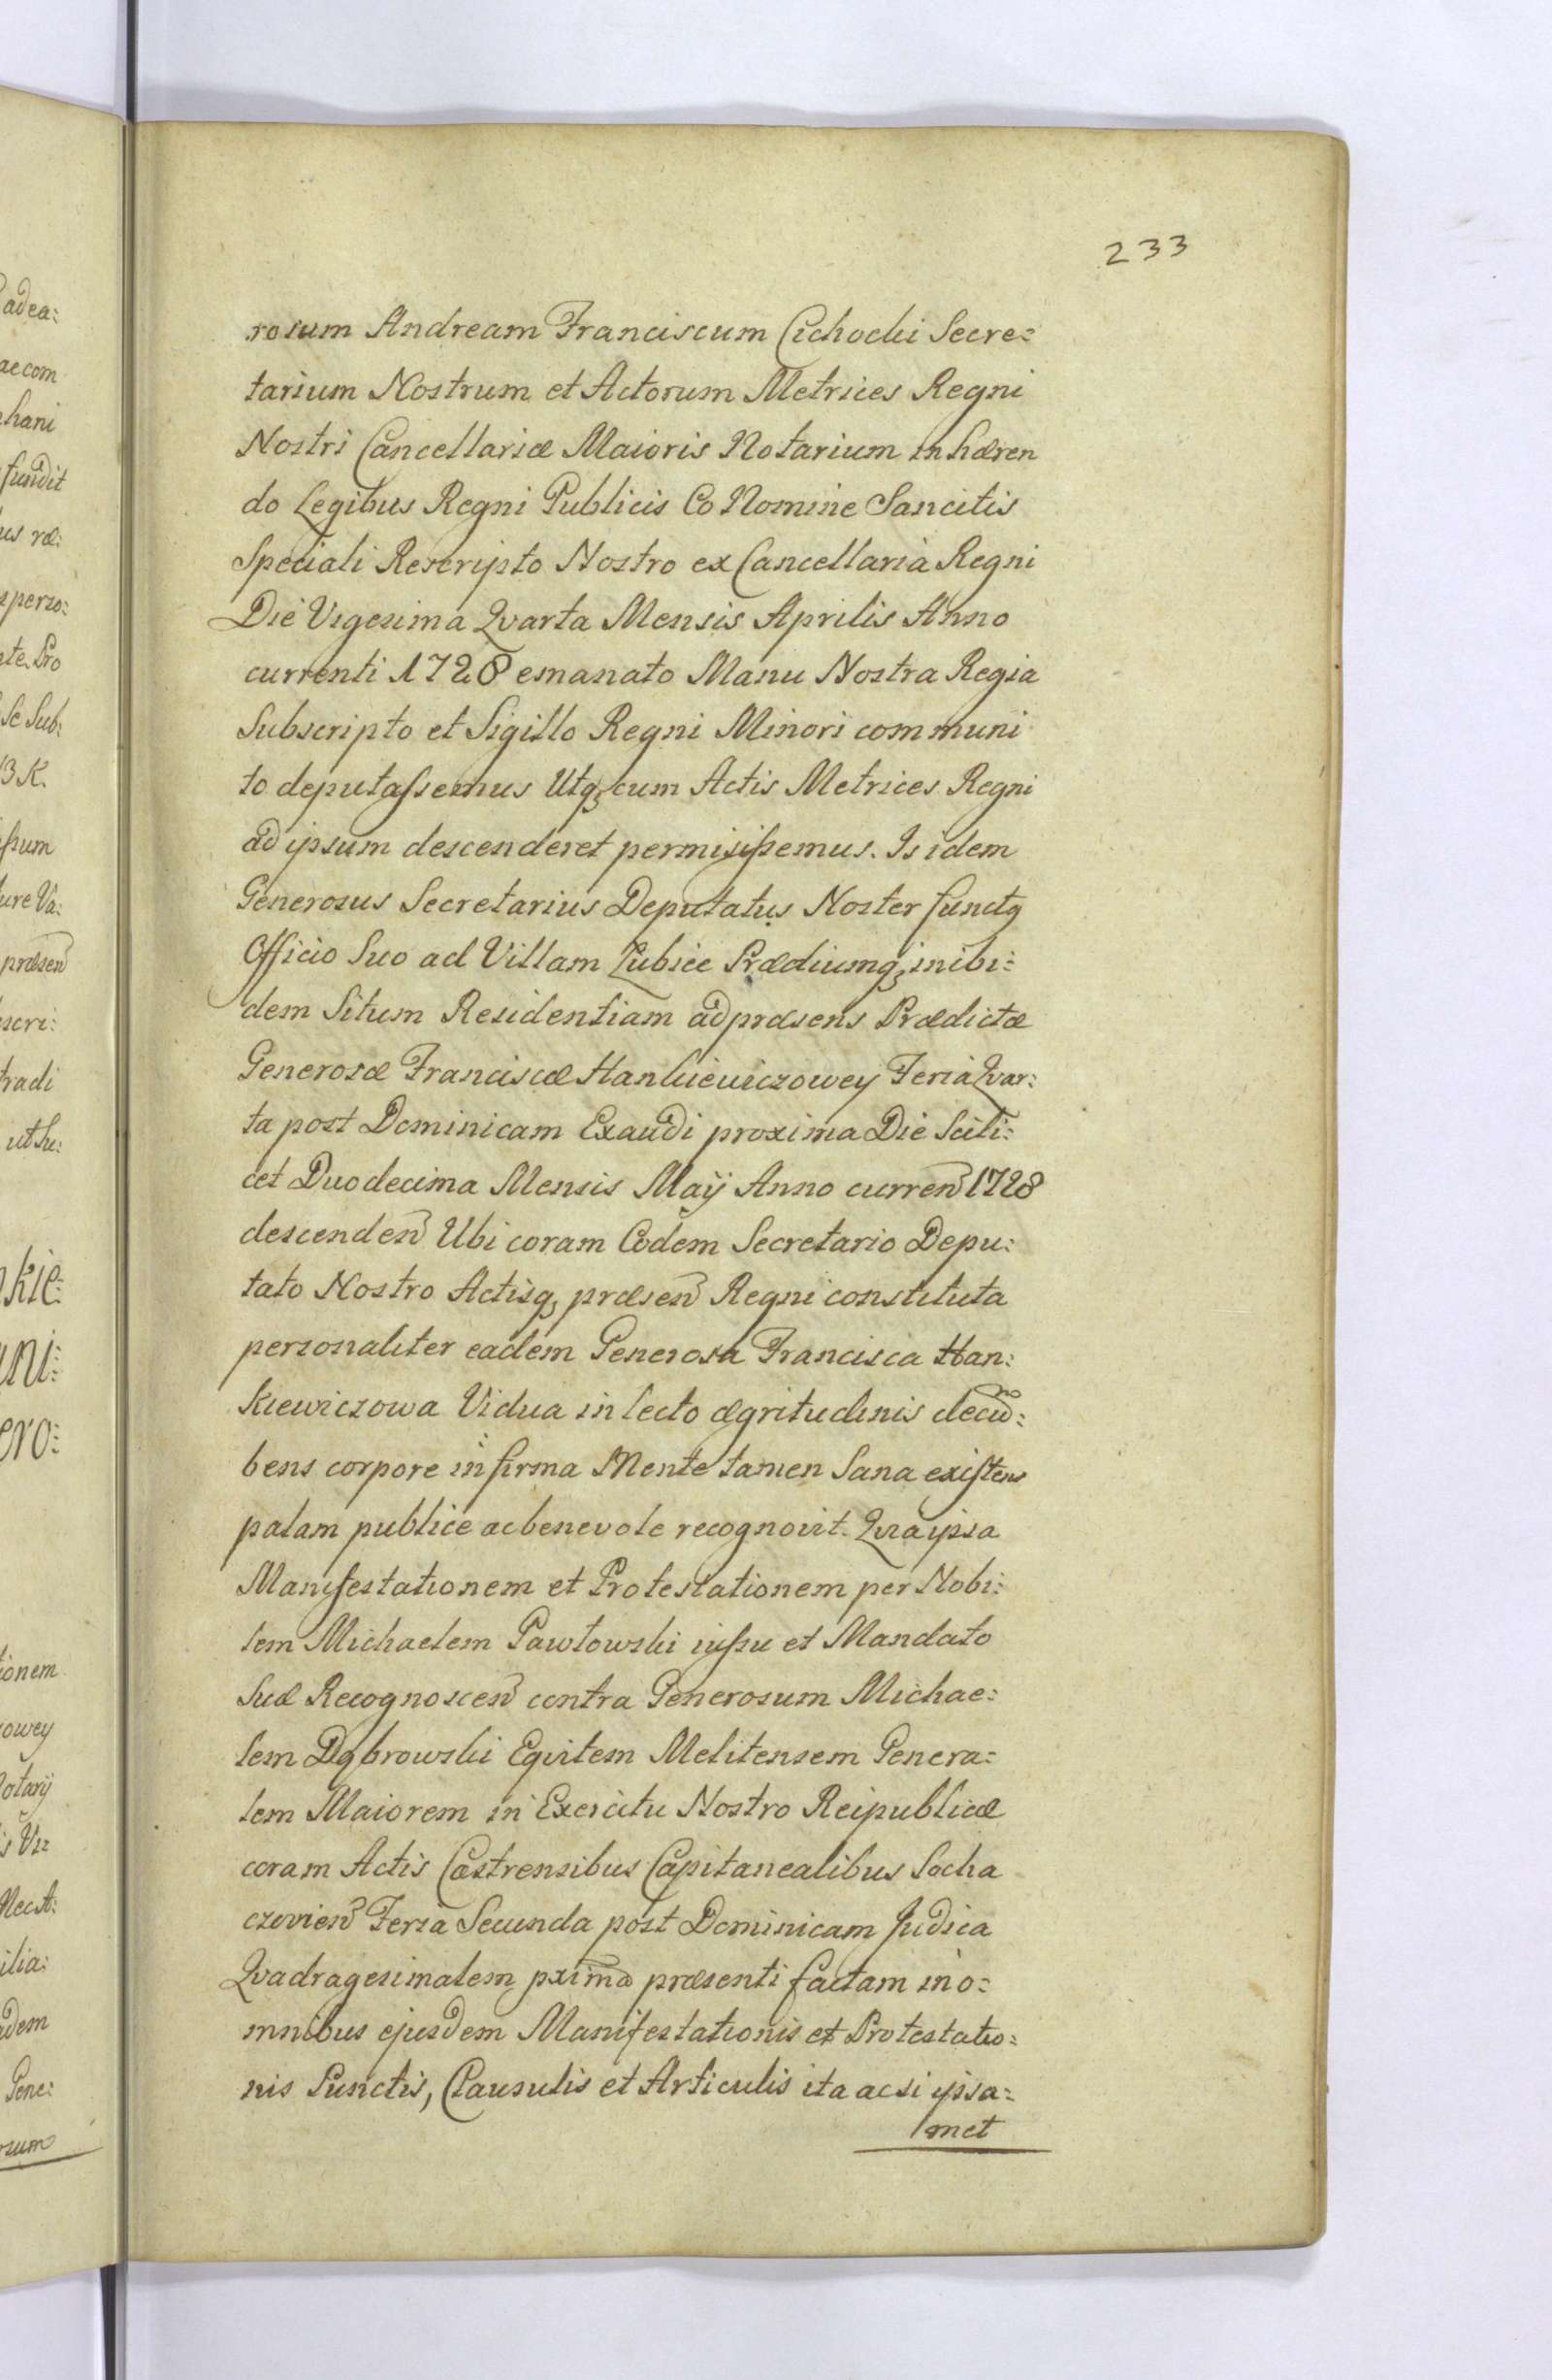 233
rosum Andream Franciscum Cichocki Secre:
tarium Nostrum et Actorum Metrices Regni
Nostri Cancellariæ Maioris Notarium inhæren
do Legibus Regni Publicis Eo Nomine Sancitis
Speciali Rescripto Nostro ex Cancellaria Regni
Die Vigesima Qvarta Mensis Aprilis Anno
currenti 1728 emanato Manu Nostra Regia
Subscripto et Sigillo Regni Minori communi
to deputassemus Utq, cum Actis Metrices Regni
ad ipsum descenderet permisissemus. Is idem
Generosus Secretarius Deputatus Noster functq
Officio Suo ad Villam Lubice Prædiumq, inibi:
dem Situm Residentiam ad præsens Prædictæ
Generosæ Franciscæ Hankiewiczowey Feria Qvar:
ta post Dominicam Exaudi proxima Die Scili:
cet Duodecima Mensis Maÿ Anno curren̄ 1728
descenden̄ Ubi coram Eodem Secretario Depu:
tato Nostro Actisq, præsen̄ Regni constituta
personaliter eadem Generosa Francisca Han:
kiewiczowa Vidua in lecto ægritudinis decu̅:
bens corpore infirma Mente tamen Sana existens
palam publice ac benevole recognovit. Qvia ipsa
Manifestationem et Protestationem per Nobi:
lem Michaelem Pawłowski iussu et Mandato
Suæ Recognoscen̄ contra Generosum Michae:
lem Dąbrowski Eqvitem Melitensem Genera:
lem Maiorem in Exercitu Nostro Reipublicæ
coram Actis Castrensibus Capitanealibus Socha
czovien̄ Feria Secunda post Dominicam Judica
Qvadragesimalem pxima præsenti factam in o:
mnibus ejusdem Manifestationis et Protestatio:
nis Punctis, Clausulis et Articulis ita ac si ipsa:
met
adea:
ae com
hani
fundit
perso:
te Pro
Se Sub:
ssum
ure Va:
præsen̄
scri:
tradi
ut Su:
kie:
ni:
ero:
ionem
owey
otarÿ
ilia:
adem
Gene:
rum